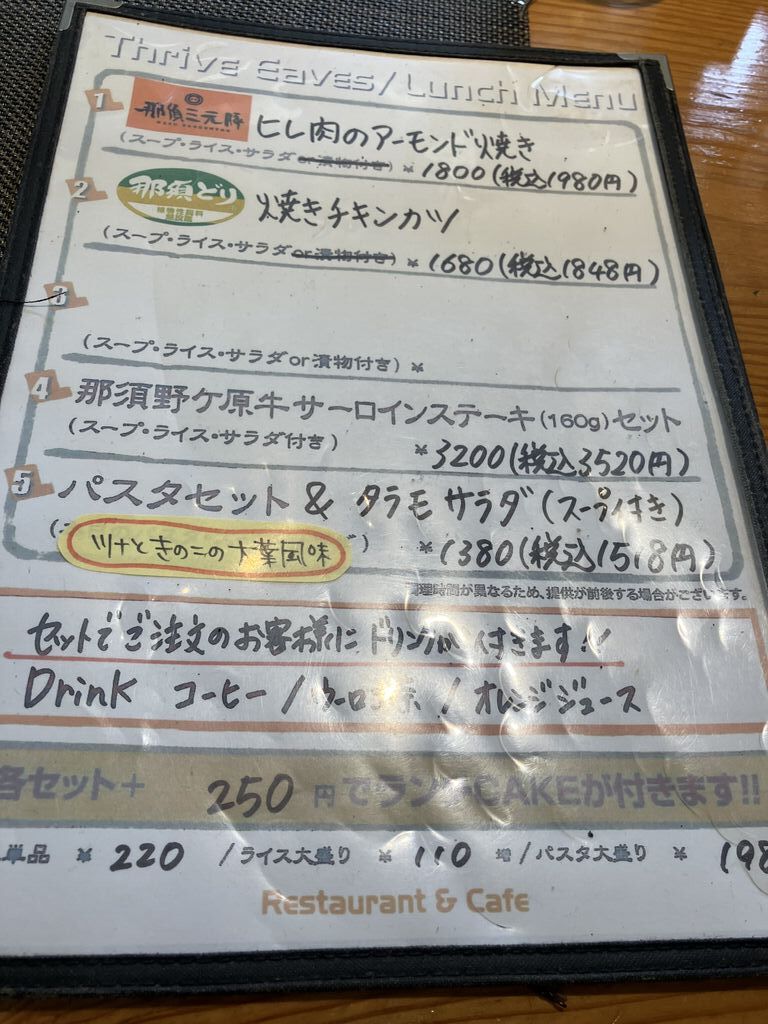 Thrive Eaves/Lunch Menu
1 那須三元豚 ヒレ肉のアーモンド焼き
(スープ・ライス・サラダor漬物付き) ¥1800(税込1980円)
2 那須どり 焼きチキンカツ
(スープ・ライス・サラダor漬物付き) ¥1680(税込1848円)
3
(スープ・ライス・サラダor漬物付き) ¥
4 那須野ケ原牛サーロインステーキ(160g)セット
(スープ・ライス・サラダ付き) ¥3200(税込3520円)
5 パスタセット & タラモサラダ(スープ付き)
ツナときのこの大葉風味 ¥1380(税込1518円)
調理時間が異なるため、提供が前後する場合がございます。
セットでご注文のお客様に ドリンクが付きます!!
Drink コーヒー / ウーロン茶 / オレンジジュース
各セット+ 250円でランチCAKEが付きます!!
単品 ¥220 /ライス大盛り ¥110 /パスタ大盛り ¥198
Restaurant & Cafe